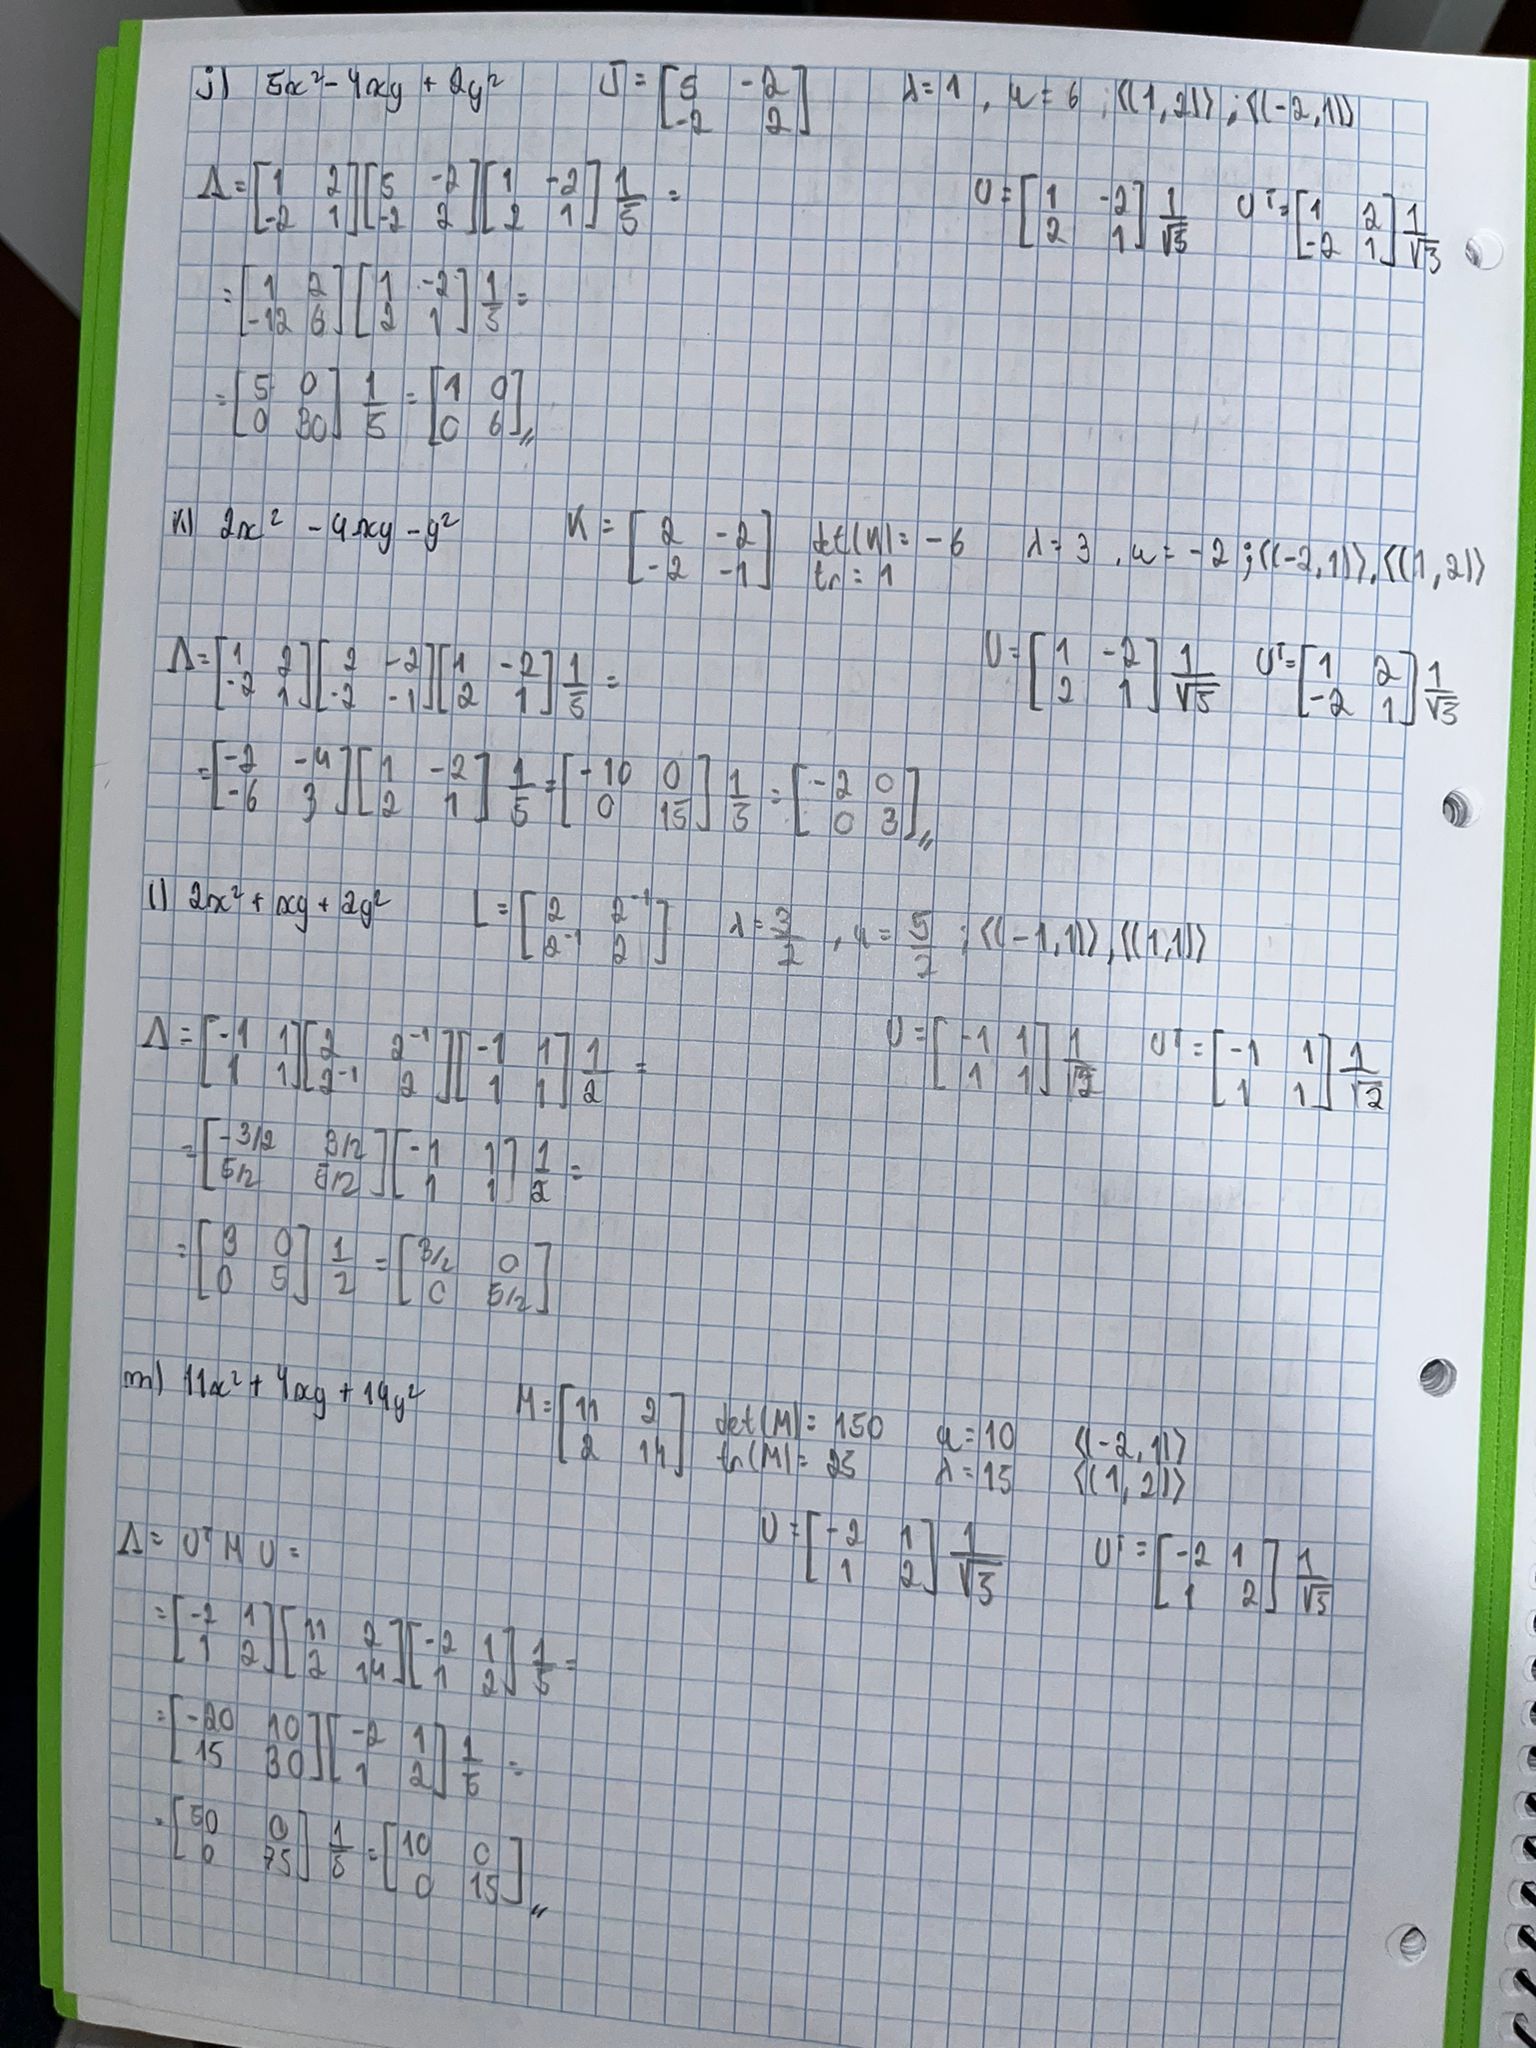 j) 5x² - 4xy + 2y²   J = [5 -2; -2 2]   λ = 1 , μ = 6 ; ⟨(1,2)⟩ ; ⟨(-2,1)⟩
Λ = [1 2; -2 1] [5 -2; -2 2] [1 -2; 2 1] 1/5 =   U = [1 -2; 2 1] 1/√5   Uᵀ = [1 2; -2 1] 1/√5
= [1 2; -12 6] [1 -2; 2 1] 1/5 =
= [5 0; 0 30] 1/5 = [1 0; 0 6]
k) 2x² - 4xy - y²   K = [2 -2; -2 -1]   det(K) = -6   tr = 1   λ = 3 , μ = -2 ; ⟨(-2,1)⟩, ⟨(1,2)⟩
Λ = [1 2; -2 1] [2 -2; -2 -1] [1 -2; 2 1] 1/5 =   U = [1 -2; 2 1] 1/√5   Uᵀ = [1 2; -2 1] 1/√5
= [-2 -4; -6 3] [1 -2; 2 1] 1/5 = [-10 0; 0 15] 1/5 = [-2 0; 0 3]
l) 2x² + xy + 2y²   L = [2 2⁻¹; 2⁻¹ 2]   λ = 3/2 , μ = 5/2 ; ⟨(-1,1)⟩, ⟨(1,1)⟩
Λ = [-1 1; 1 1] [2 2⁻¹; 2⁻¹ 2] [-1 1; 1 1] 1/2 =   U = [-1 1; 1 1] 1/√2   Uᵀ = [-1 1; 1 1] 1/√2
= [-3/2 3/2; 5/2 5/2] [-1 1; 1 1] 1/2 =
= [3 0; 0 5] 1/2 = [3/2 0; 0 5/2]
m) 11x² + 4xy + 14y²   M = [11 2; 2 14]   det(M) = 150   μ = 10   ⟨(-2,1)⟩
tr(M) = 25   λ = 15   ⟨(1,2)⟩
Λ = Uᵀ M U =   U = [-2 1; 1 2] 1/√5   Uᵀ = [-2 1; 1 2] 1/√5
= [-2 1; 1 2] [11 2; 2 14] [-2 1; 1 2] 1/5 =
= [-20 10; 15 30] [-2 1; 1 2] 1/5 =
= [50 0; 0 75] 1/5 = [10 0; 0 15]